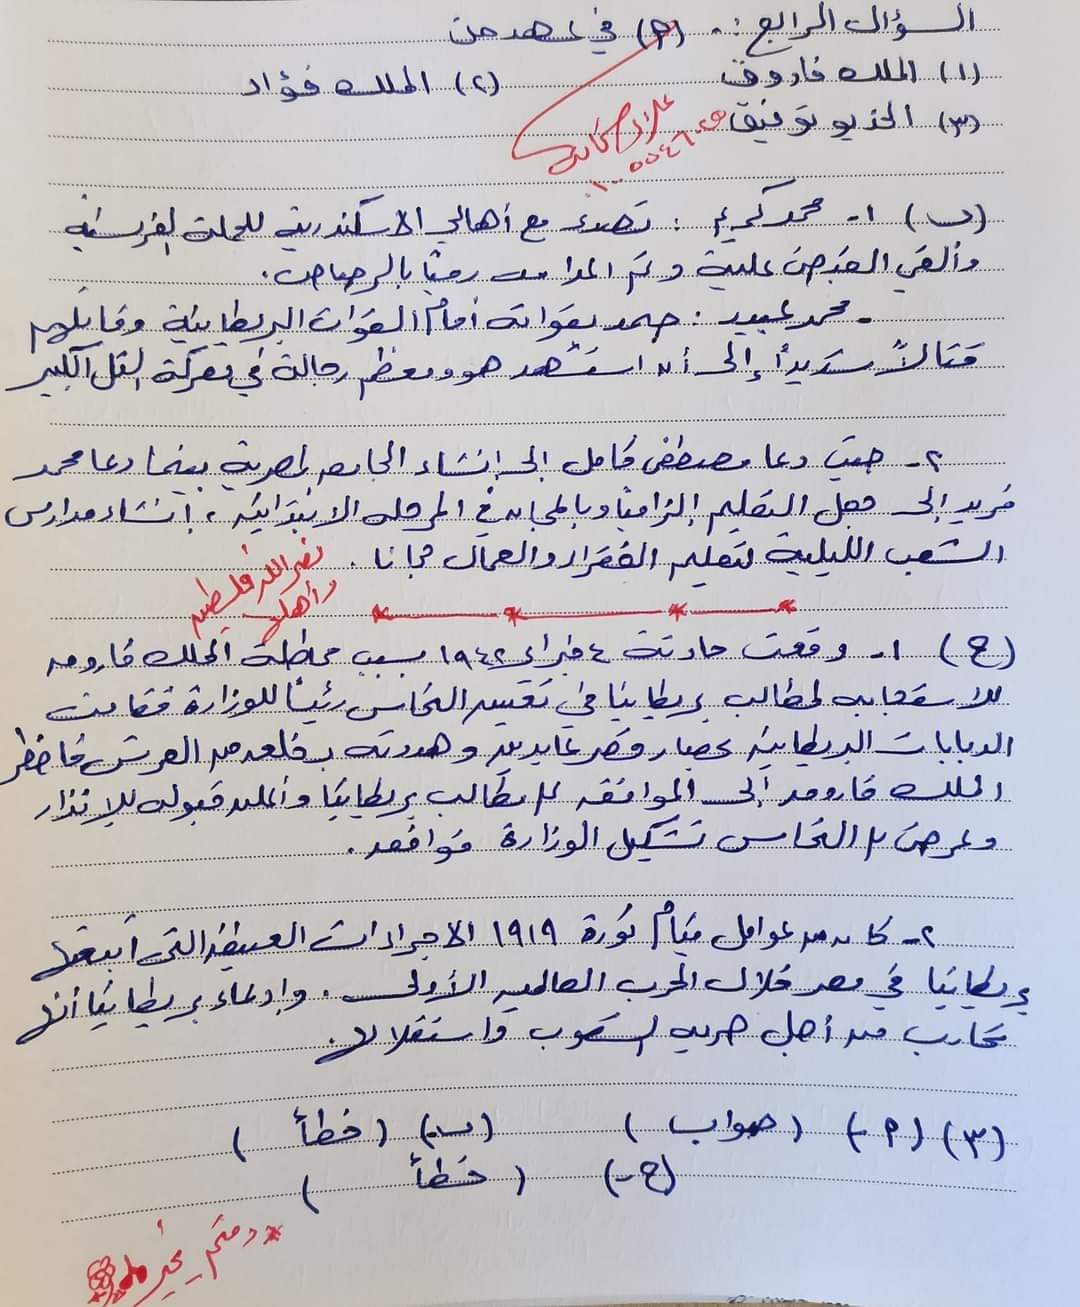 السؤال الرابع :- (م) في عهد من
(١) الملك فاروق (٢) الملك فؤاد
(٣) الخديو توفيق
(ب) ١- محمد كريم : تصدى مع أهالي الاسكندرية للحملة الفرنسية
وألقي القبض علية وتم اعدامه رميًا بالرصاص.
- محمد عبيد : صمد بقواته أمام القوات البريطانية وقاتلهم
قتالاً شديداً إلى أن استشهد هو ومعظم رجالة في معركة التل الكبير
٢- حيث دعا مصطفى كامل إلى إنشاء الجامعه المصرية بينما دعا محمد
فريد إلى جعل التعليم إلزاميًا وبالمجان في المرحله الابتدائية ، إنشاء مدارس
الشعب الليلية لتعليم الفقراء والعمال مجانا .
نصر الله فلسطين
وأهلها
(ج) ١- وقعت حادثة ٤ فبراير ١٩٤٢ بسبب مماطلة الملك فاروق
للاستجابه لمطالب بريطانيا في تعيين النحاس رئيسًا للوزارة فقامت
الدبابات البريطانية بحصار قصر عابدين وهددته بخلعه من العرش فاضطر
الملك فاروق إلى الموافقه على مطالب بريطانيا وأعلن قبوله للإنذار
وعرض على النحاس تشكيل الوزارة فوافق .
٢- كان من عوامل قيام ثورة ١٩١٩ الاجراءات العنيفة التى أتبعتها
بريطانيا في مصر خلال الحرب العالمية الأولى . وإدعاء بريطانيا أنها
تحارب من أجل حرية الشعوب واستقلالها .
(٣) (م-) (صواب) (ب-) (خطأ)
(ج-) (خطأ)
* دمتم بخير